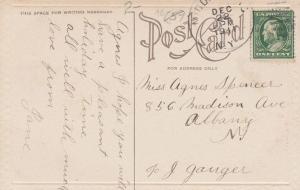 THIS SPACE FOR WRITING MESSAGES
Post Card
FOR ADDRESS ONLY
DEC
22
5 PM
N.Y.
Agnes I hope you will
have a pleasant
holiday time
all well with much
love from
Jane
Miss Agnes Spencer
856 Madison Ave
Albany
N.Y.
J Gauger